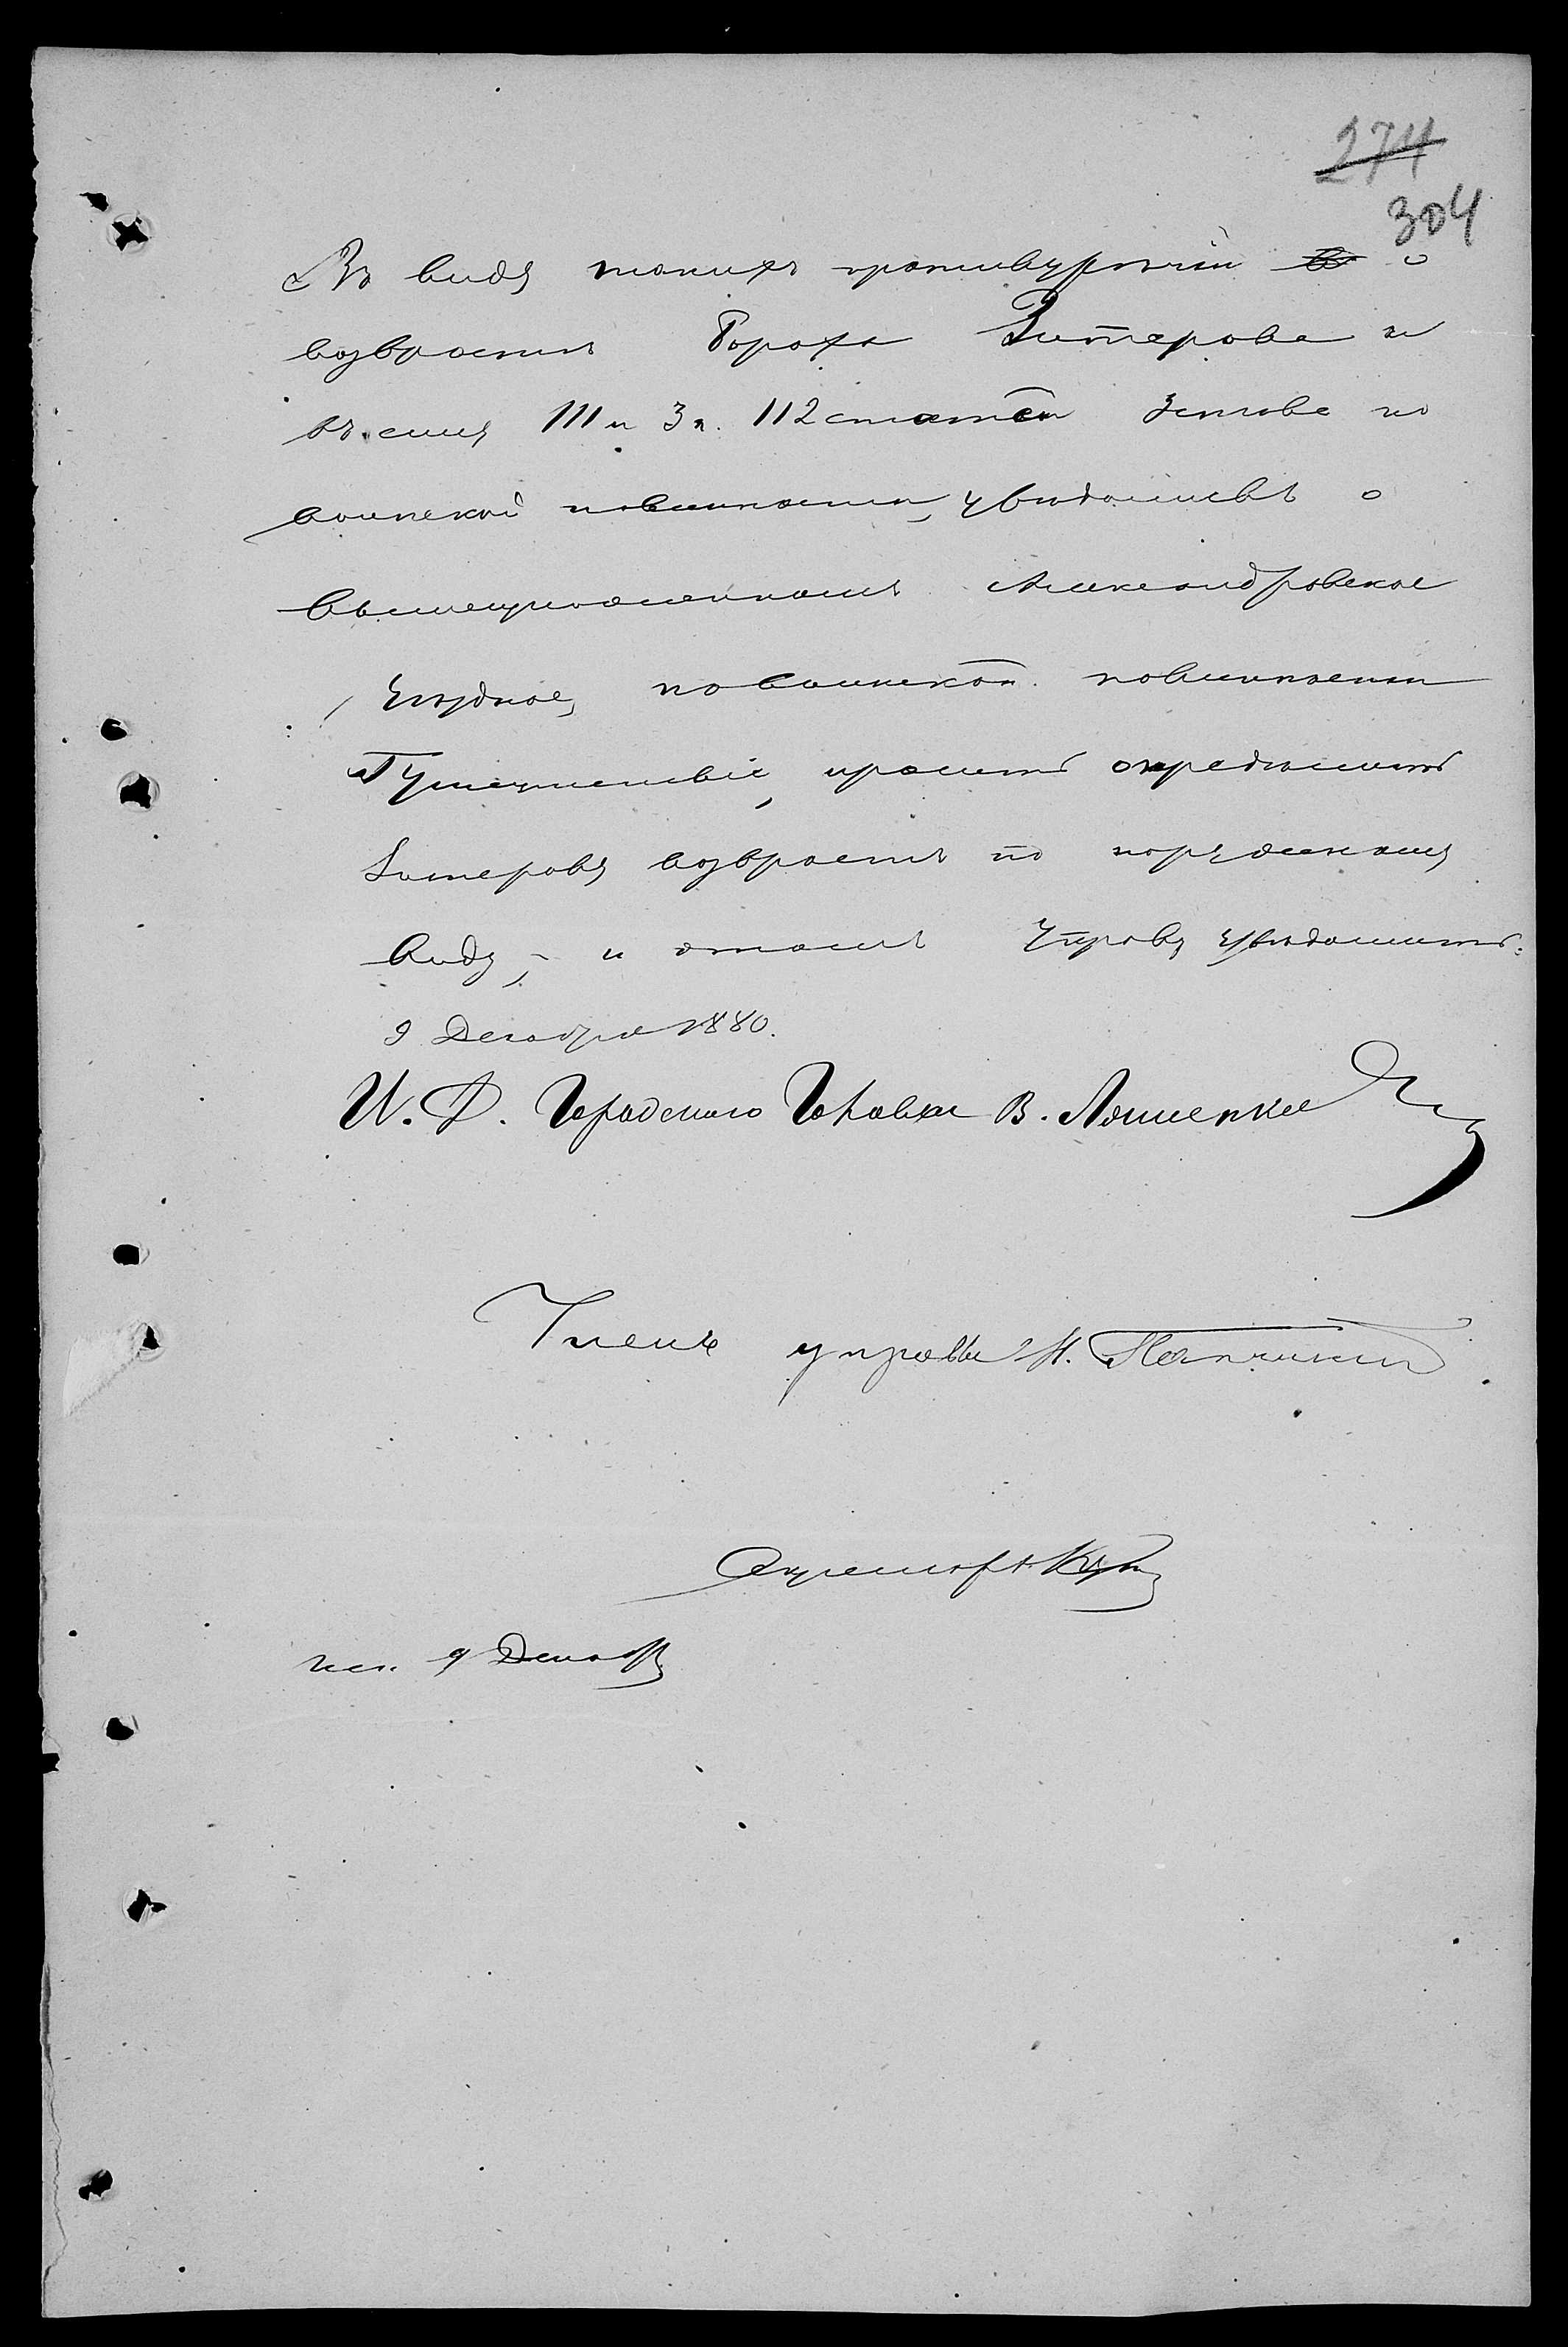 274
304
Въ виду такихъ противурѣчій о
возврастѣ Бороха Зитерова и
въ силу 111 и 3 п. 112 статей Устава по
воинской повинности, увѣдомивъ о
вышеизложенномъ Александровское
Уѣздное, по воинской повинности
Присутствіе, проситъ опредѣлить
Зитерову возврастъ по наружному
виду, и о томъ Управу увѣдомить.
9 Декабря 1880.
И. Д. Городского Головы В. Ляшенко
Членъ управы Н.
Секретарь
исп. 9 Декабр